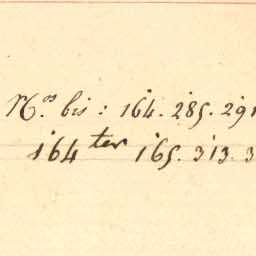 N.os bis : 164. 285. 291
164 ter 165. 313. 3